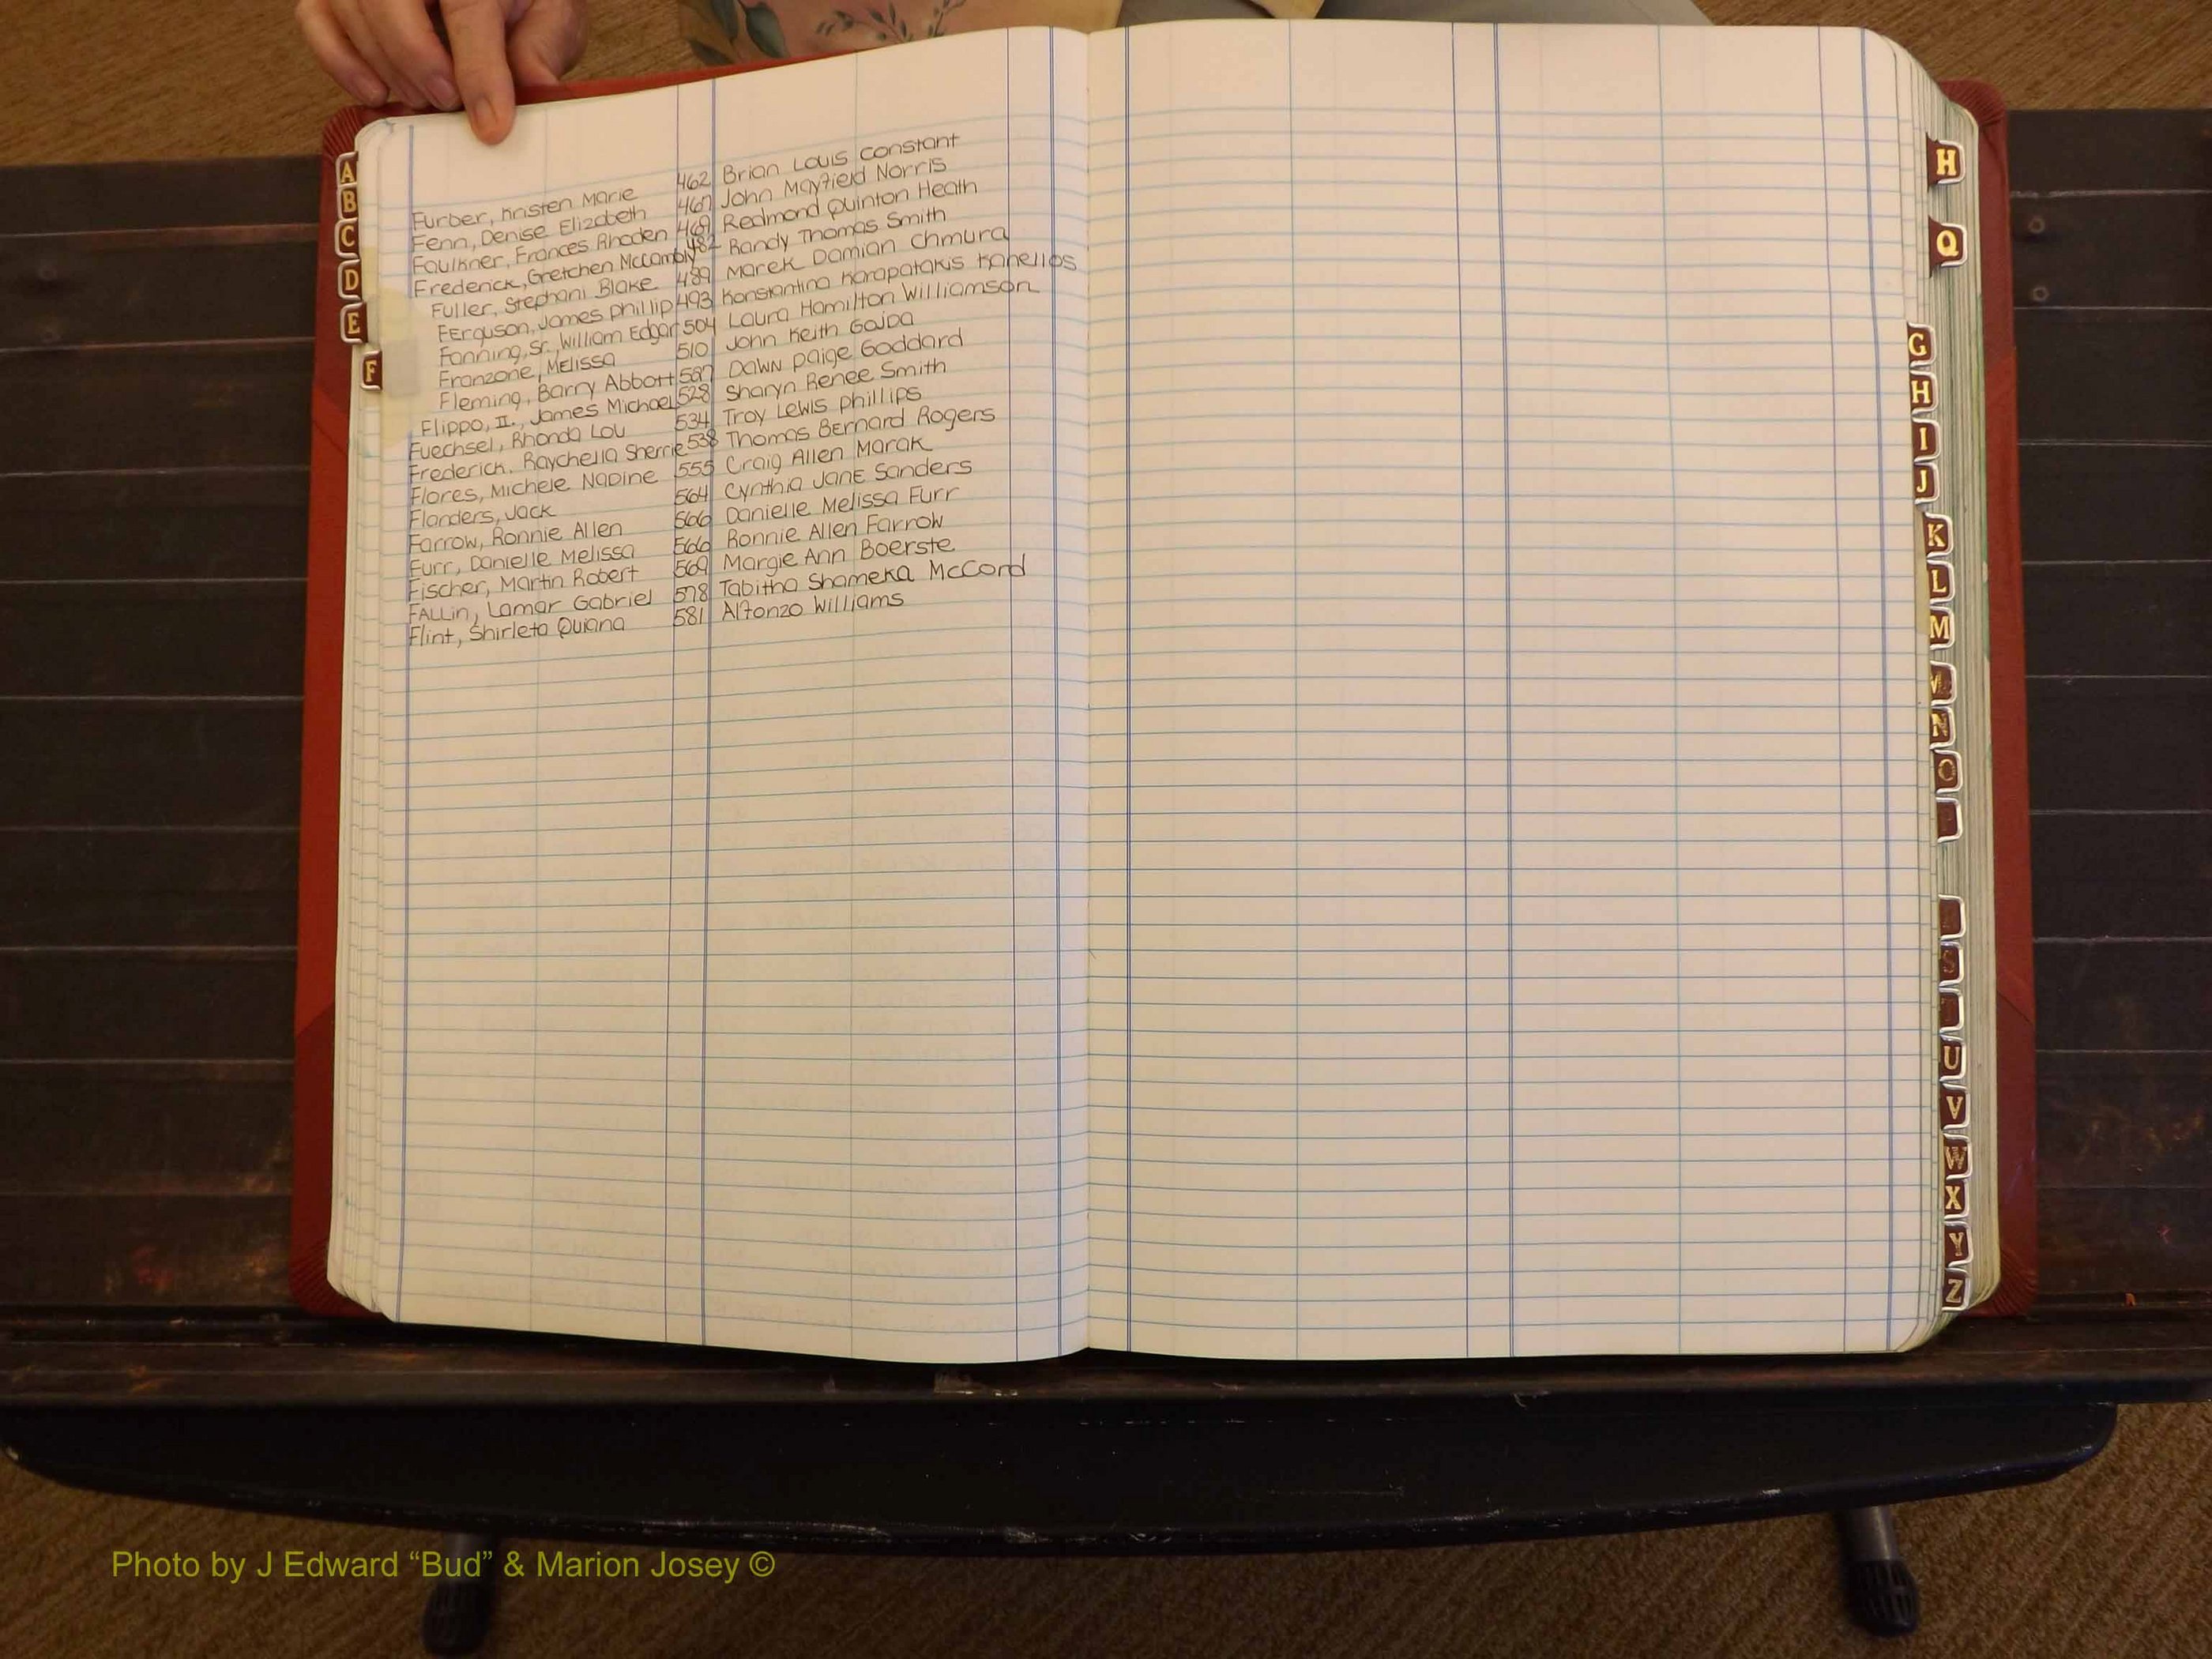 Furber, Kristen Marie 462 Brian Louis Constant
Fenn, Denise Elizabeth 467 John Mayfield Norris
Faulkner, Frances Rhoden 469 Redmond Quinton Heath
Frederick, Gretchen McCambly 482 Randy Thomas Smith
Fuller, Stephani Blake 489 Marek Damian Chmura
Ferguson, James Phillip 493 Konstantina Karapatakis Kanellos
Fanning, Sr., William Edgar 504 Laura Hamilton Williamson
Franzone, Melissa 510 John Keith
Fleming, Barry Abbott Dawn Paige Goddard
Flippo, II., James Michael 528 Sharyn Renee Smith
Fuechsel, Rhonda Lou 534 Troy Lewis Phillips
Frederick, Raychella Sherrie 538 Thomas Bernard Rogers
Flores, Michele Nadine 555 Craig Allen Marak
Flanders, Jack 564 Cynthia Jane Sanders
Farrow, Ronnie Allen 566 Danielle Melissa Furr
Furr, Danielle Melissa 566 Ronnie Allen Farrow
Fischer, Martin Robert 569 Margie Ann Boerste
FALLin, Lamar Gabriel 578 Tabitha Shameka McCord
Flint, Shirleta Quiana 581 Alfonzo Williams
A
B
C
D
E
F
H
Q
G
H
I
J
K
L
M
N
O
S
U
V
W
X
Y
Z
Photo by J Edward “Bud” & Marion Josey ©